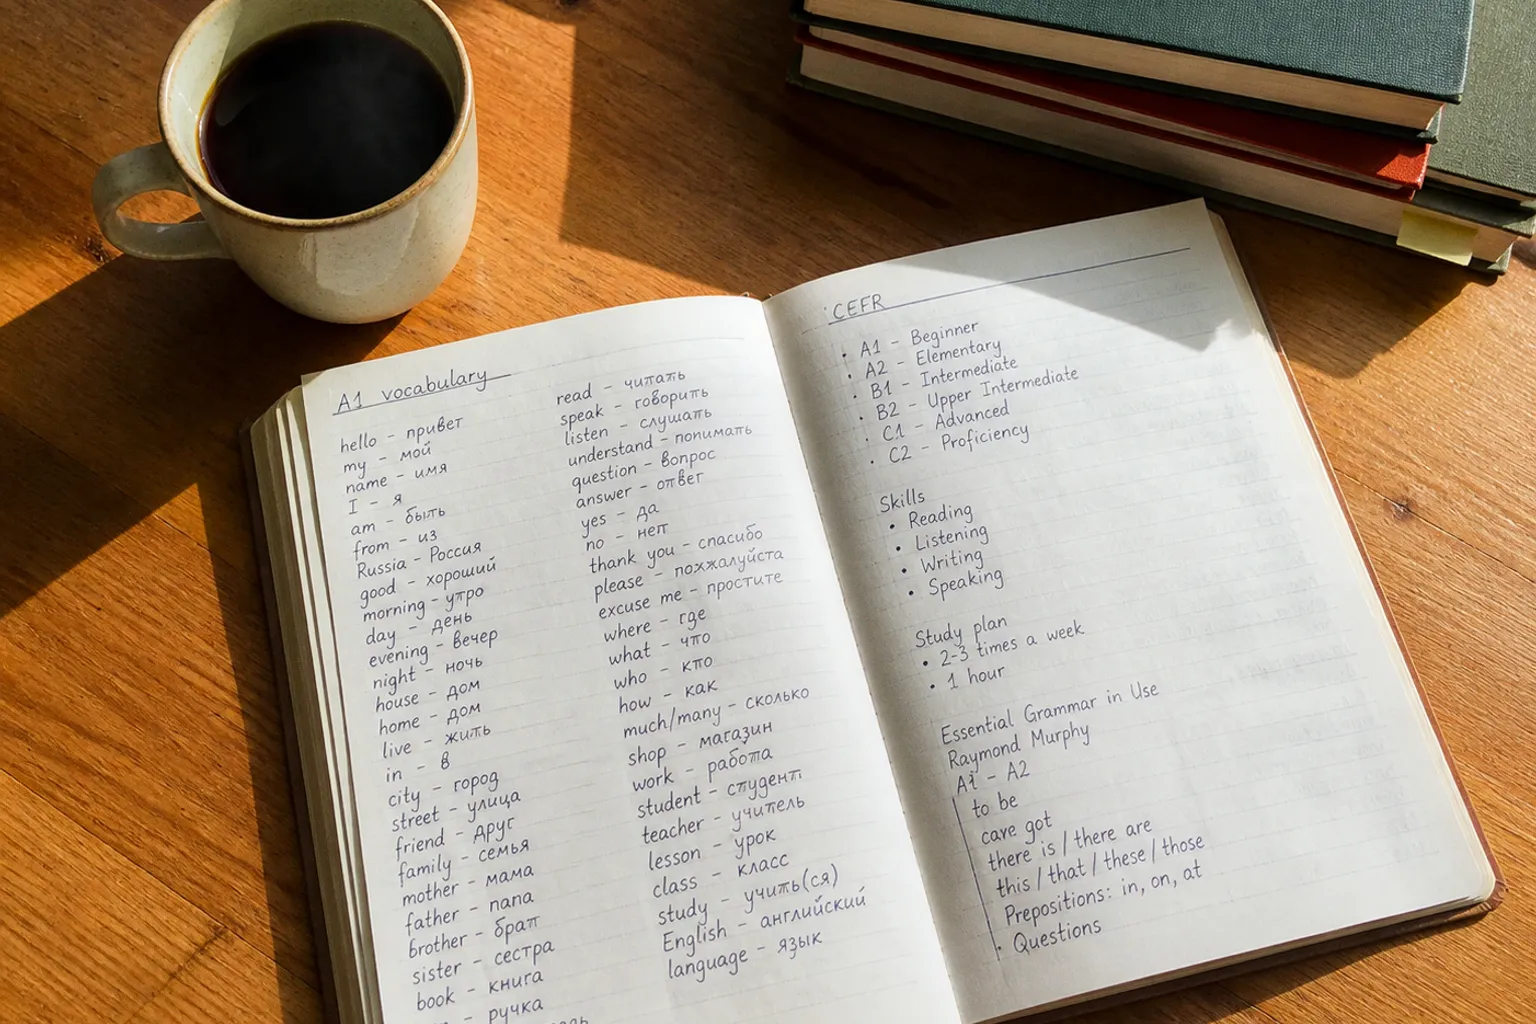 A1 vocabulary
hello – привет
my – мой
name – имя
I – я
am – быть
from – из
Russia – Россия
good – хороший
morning – утро
day – день
evening – вечер
night – ночь
house – дом
home – дом
live – жить
in – в
city – город
street – улица
friend – друг
family – семья
mother – мама
father – папа
brother – брат
sister – сестра
book – книга
– ручка
read – читать
speak – говорить
listen – слушать
understand – понимать
question – вопрос
answer – ответ
yes – да
no – нет
thank you – спасибо
please – похжалуйста
excuse me – простите
where – где
what – что
who – кто
how – как
much/many – сколько
shop – магазин
work – работа
student – студент
teacher – учитель
lesson – урок
class – класс
study – учить(ся)
English – английский
language – язык
CEFR
• A1 – Beginner
• A2 – Elementary
• B1 – Intermediate
• B2 – Upper Intermediate
• C1 – Advanced
• C2 – Proficiency
Skills
• Reading
• Listening
• Writing
• Speaking
Study plan
• 2-3 times a week
• 1 hour
Essential Grammar in Use
Raymond Murphy
A1 – A2
to be
cave got
there is / there are
this / that / these / those
Prepositions: in, on, at
• Questions